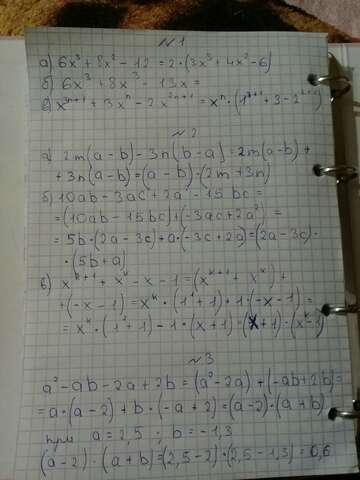 №1
а) 6x³ + 8x² - 12 = 2 · (3x³ + 4x² - 6)
б) 6x³ + 8x³ - 13x =
в) x³ⁿ⁺¹ + 3xⁿ - 2x²ⁿ⁺¹ = xⁿ · (1³⁺¹ + 3 - 2²⁺¹)
№2
а) 2m(a - b) - 3n(b - a) = 2m(a - b) +
+ 3n(a - b) = (a - b) · (2m + 3n)
б) 10ab - 3ac + 2a² - 15bc =
= (10ab - 15bc) + (-3ac + 2a²) =
= 5b · (2a - 3c) + a · (-3c + 2a) = (2a - 3c) ·
· (5b + a)
в) xᵏ⁺¹ + xᵏ - x - 1 = (xᵏ⁺¹ + xᵏ) +
+ (-x - 1) = xᵏ · (1¹ + 1) + 1 · (-x - 1) =
= xᵏ · (1¹ + 1) - 1 · (x + 1) = (x + 1) · (xᵏ - 1)
№3
a² - ab - 2a + 2b = (a² - 2a) + (-ab + 2b) =
= a · (a - 2) + b · (-a + 2) = (a - 2) · (a + b)
при a = 2,5 ; b = -1,3
(a - 2) · (a + b) = (2,5 - 2) · (2,5 - 1,3) = 0,6